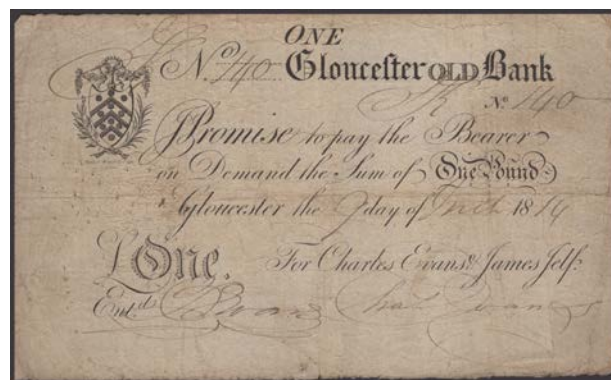 ONE
No. 140 Gloucester OLD Bank
No. 140
I Promise to pay the Bearer
on Demand the Sum of One Pound
Gloucester the 9 day of 1814
£ One. For Charles Evans & James Jelf.
Entd. Evans Chas Evans